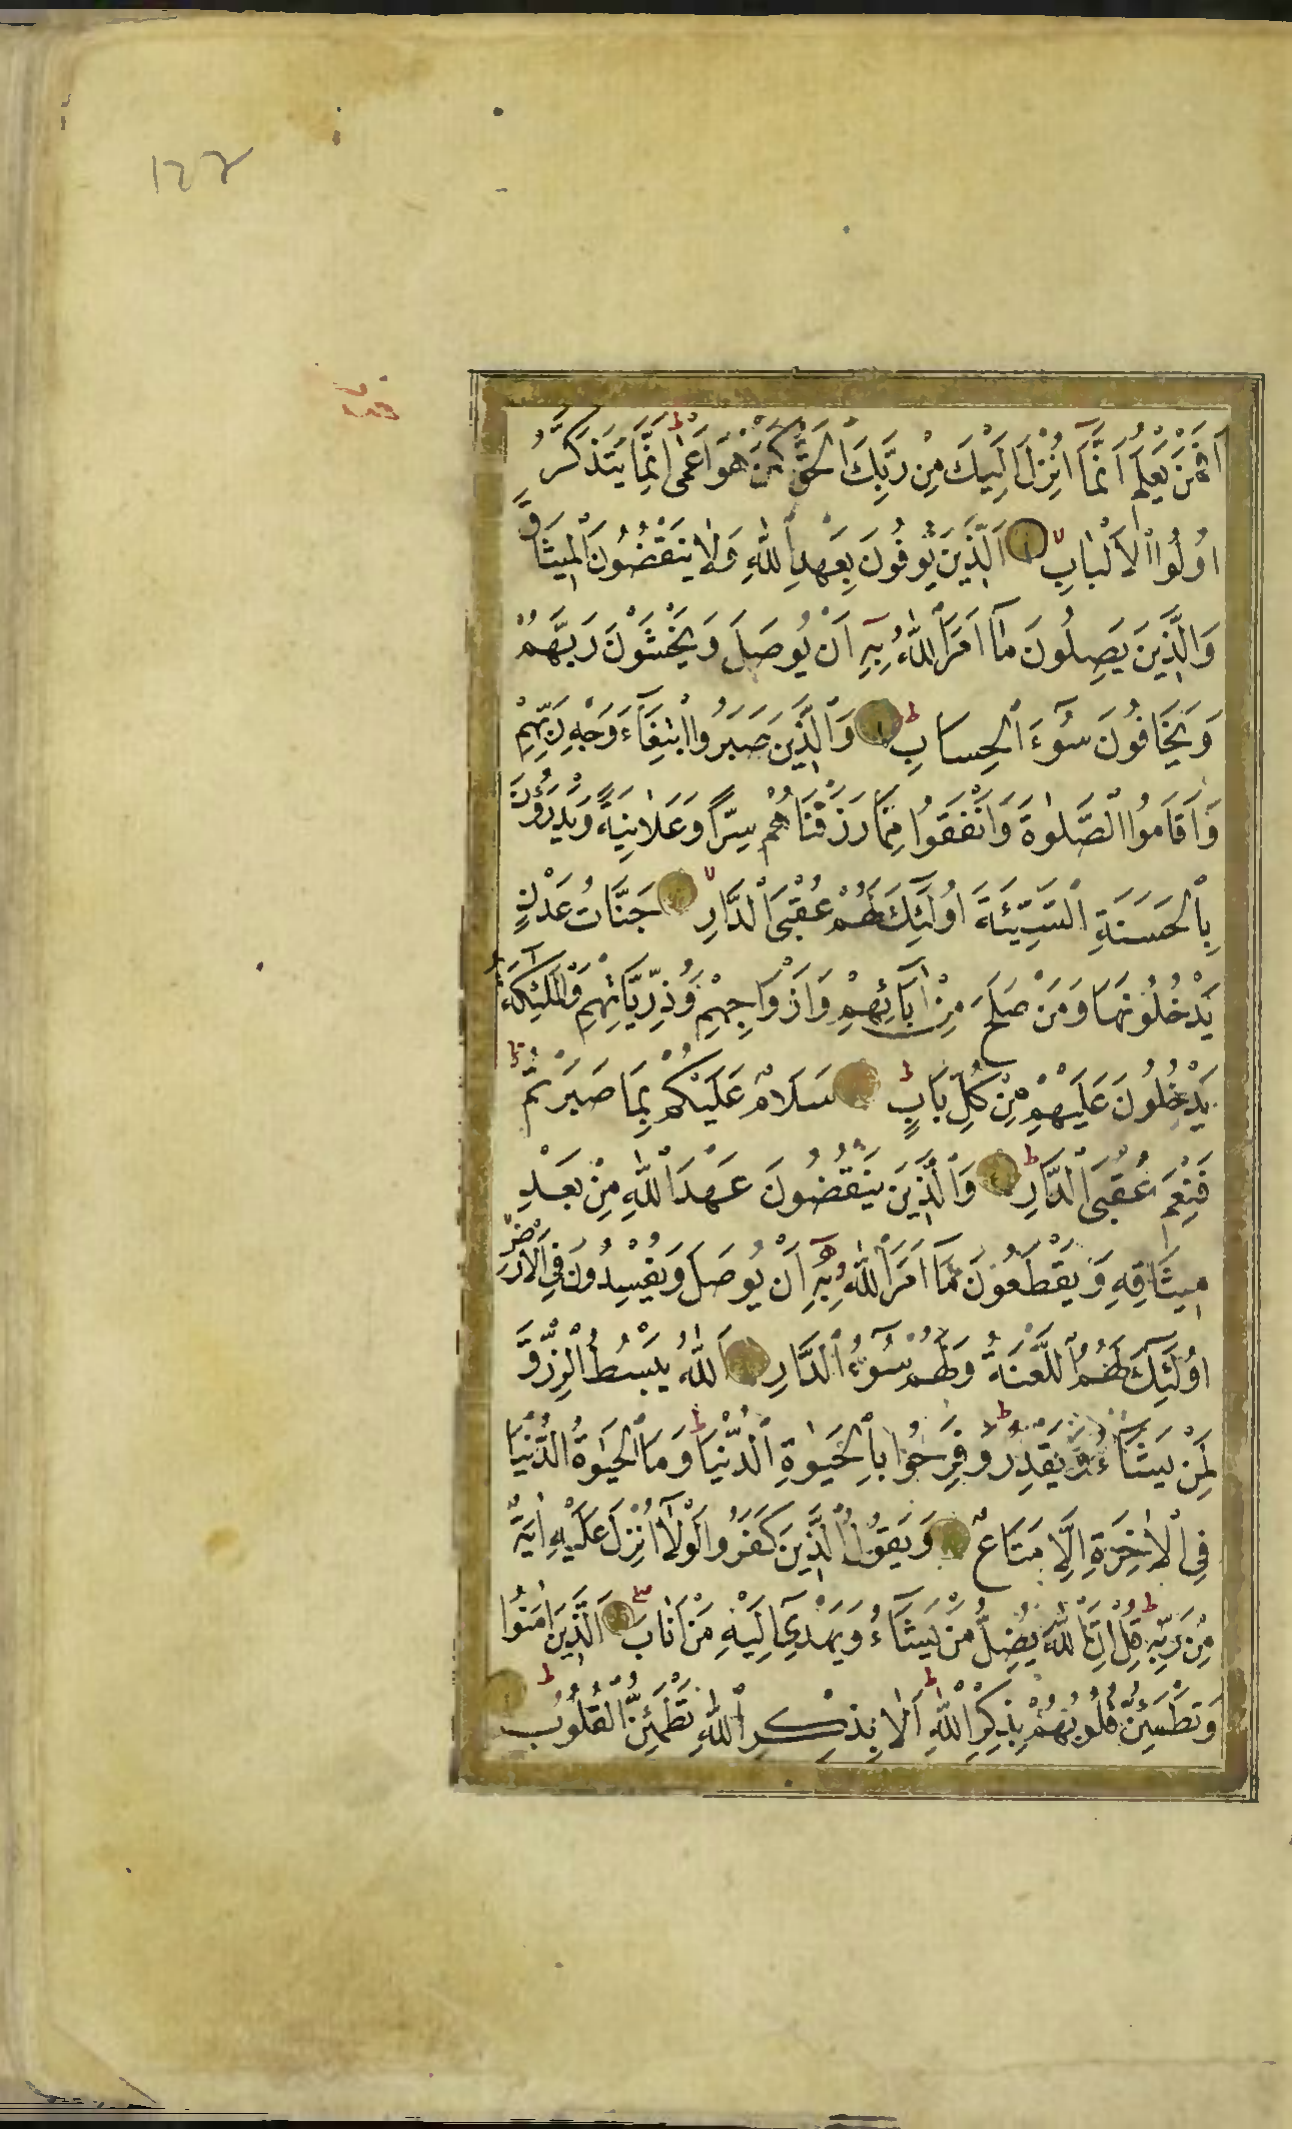 اَفَمَنْ يَعْلَمُ اَنَّمَٓا اُنْزِلَ اِلَيْكَ مِنْ رَبِّكَ الْحَقُّ كَمَنْ هُوَ اَعْمٰى ط اِنَّمَا يَتَذَكَّرُ
اُولُوا الْاَلْبَابِ لا اَلَّذِينَ يُوفُونَ بِعَهْدِ اللّٰهِ وَلَا يَنْقُضُونَ الْمِيثَاقَ
وَالَّذِينَ يَصِلُونَ مَٓا اَمَرَ اللّٰهُ بِهِٓ اَنْ يُوصَلَ وَيَخْشَوْنَ رَبَّهُمْ
وَيَخَافُونَ سُٓوءَ الْحِسَابِ ط وَالَّذِينَ صَبَرُوا ابْتِغَٓاءَ وَجْهِ رَبِّهِمْ
وَاَقَامُوا الصَّلٰوةَ وَاَنْفَقُوا مِمَّا رَزَقْنَاهُمْ سِرًّا وَعَلَانِيَةً وَيَدْرَؤُنَ
بِالْحَسَنَةِ السَّيِّئَةَ اُولٰٓئِكَ لَهُمْ عُقْبَى الدَّارِ لا جَنَّاتُ عَدْنٍ
يَدْخُلُونَهَا وَمَنْ صَلَحَ مِنْ اٰبَٓائِهِمْ وَاَزْوَاجِهِمْ وَذُرِّيَّاتِهِمْ وَالْمَلٰٓئِكَةُ
يَدْخُلُونَ عَلَيْهِمْ مِنْ كُلِّ بَابٍ ط سَلَامٌ عَلَيْكُمْ بِمَا صَبَرْتُمْ
فَنِعْمَ عُقْبَى الدَّارِ ط وَالَّذِينَ يَنْقُضُونَ عَهْدَ اللّٰهِ مِنْ بَعْدِ
مِيثَاقِهِ وَيَقْطَعُونَ مَٓا اَمَرَ اللّٰهُ بِهِٓ اَنْ يُوصَلَ وَيُفْسِدُونَ فِي الْاَرْضِ
اُولٰٓئِكَ لَهُمُ اللَّعْنَةُ وَلَهُمْ سُٓوءُ الدَّارِ اَللّٰهُ يَبْسُطُ الرِّزْقَ
لِمَنْ يَشَٓاءُ وَيَقْدِرُ ط وَفَرِحُوا بِالْحَيٰوةِ الدُّنْيَا ط وَمَا الْحَيٰوةُ الدُّنْيَا
فِي الْاٰخِرَةِ اِلَّا مَتَاعٌ وَيَقُولُ الَّذِينَ كَفَرُوا لَوْلَٓا اُنْزِلَ عَلَيْهِ اٰيَةٌ
مِنْ رَبِّهِ ط قُلْ اِنَّ اللّٰهَ يُضِلُّ مَنْ يَشَٓاءُ وَيَهْدِٓي اِلَيْهِ مَنْ اَنَابَ اَلَّذِينَ اٰمَنُوا
وَتَطْمَئِنُّ قُلُوبُهُمْ بِذِكْرِ اللّٰهِ ط اَلَا بِذِكْرِ اللّٰهِ تَطْمَئِنُّ الْقُلُوبُ ط